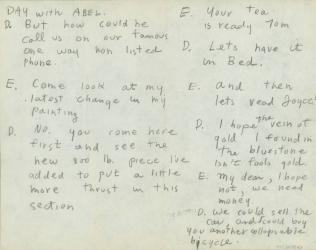 DAY with ABEL.
D. But how could he
call us on our famous
one way non listed
phone.
E. Come look at my
latest change in my
painting
D. No, you come here
first and see the
new 300 lb. piece I've
added to put a little
more thrust in this
section
E. Your tea
is ready Tom
D. Lets have it
in Bed.
E. and then
lets read Joyce!
D. I hope the vein of
gold I found in
the bluestone
isn't fools gold.
E. My dear, I hope
not, we need
money
D. we could sell the
car, and could buy
you another collapsable
bicycle.